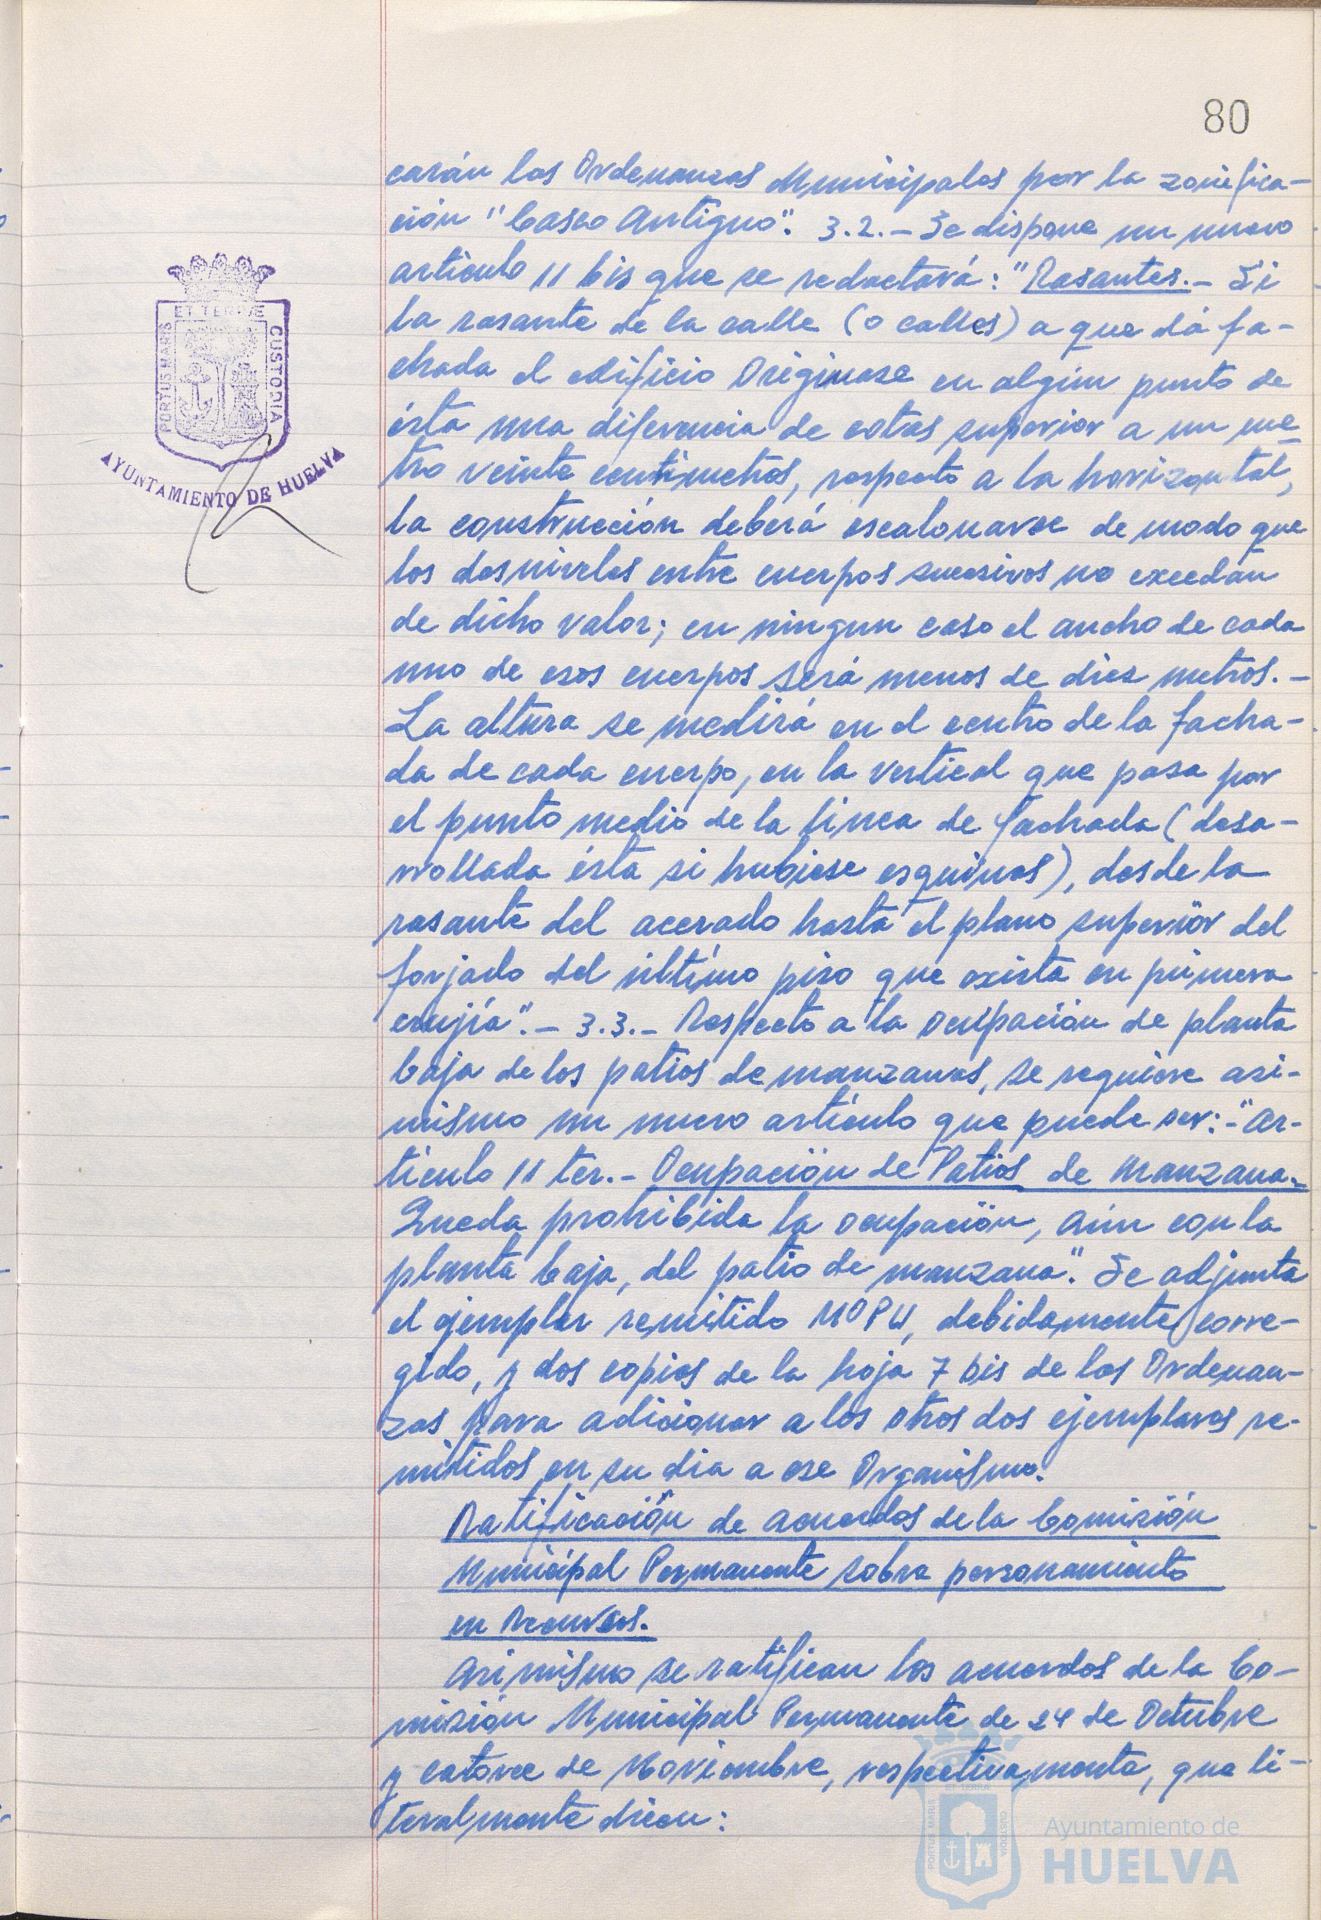 80
carán las Ordenanzas Municipales por la zonifica-
ción "Casco Antiguo". 3.2.- Se dispone un nuevo
artículo 11 bis que se redactará: "Rasantes.- Si
la rasante de la calle (o calles) a que dá fa-
chada el edificio Originase en algún punto de
ésta una diferencia de cotas superior a un me
tro veinte centímetros, respecto a la horizontal,
la construcción deberá escalonarse de modo que
los desniveles entre cuerpos sucesivos no excedan
de dicho valor; en ningun caso el ancho de cada
uno de esos cuerpos será menos de diez metros.-
La altura se medirá en el centro de la facha-
da de cada cuerpo, en la vertical que pasa por
el punto medio de la línea de fachada (desa-
rrollada ésta si hubiese esquinas), desde la
rasante del acerado hasta el plano superior del
forjado del último piso que exista en primera
crujía".- 3.3.- Respecto a la ocupación de planta
baja de los patios de manzanas, se requiere asi-
mismo un nuevo artículo que puede ser:-"Ar-
tículo 11 ter.- Ocupación de Patios de Manzana.-
Queda prohibida la ocupación, aún con la
planta baja, del patio de manzana". Se adjunta
el ejemplar remitido MOPU, debidamente corre-
gido, y dos copias de la hoja 7 bis de las Ordenan-
zas para adicionar a los otros dos ejemplares re-
mitidos en su dia a ese Organismo.
Ratificación de acuerdos de la Comisión
Municipal Permanente sobre personamiento
en Recursos.
Asimismo se ratifican los acuerdos de la Co-
misión Municipal Permanente de 24 de Octubre
y catorce de Noviembre, respectivamente, que li-
teralmente dicen:
ET TERRAE
PORTUS MARIS
CUSTODIA
AYUNTAMIENTO DE HUELVA
Ayuntamiento de
HUELVA